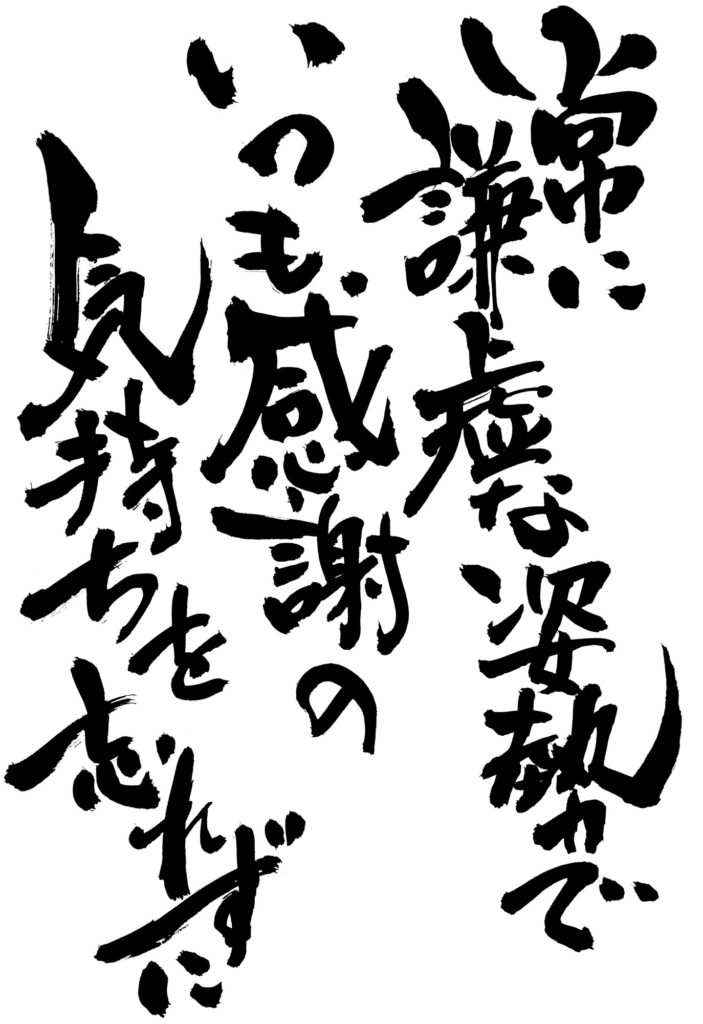 常に謙虚な姿勢で
いつも感謝の
気持ちを忘れずに